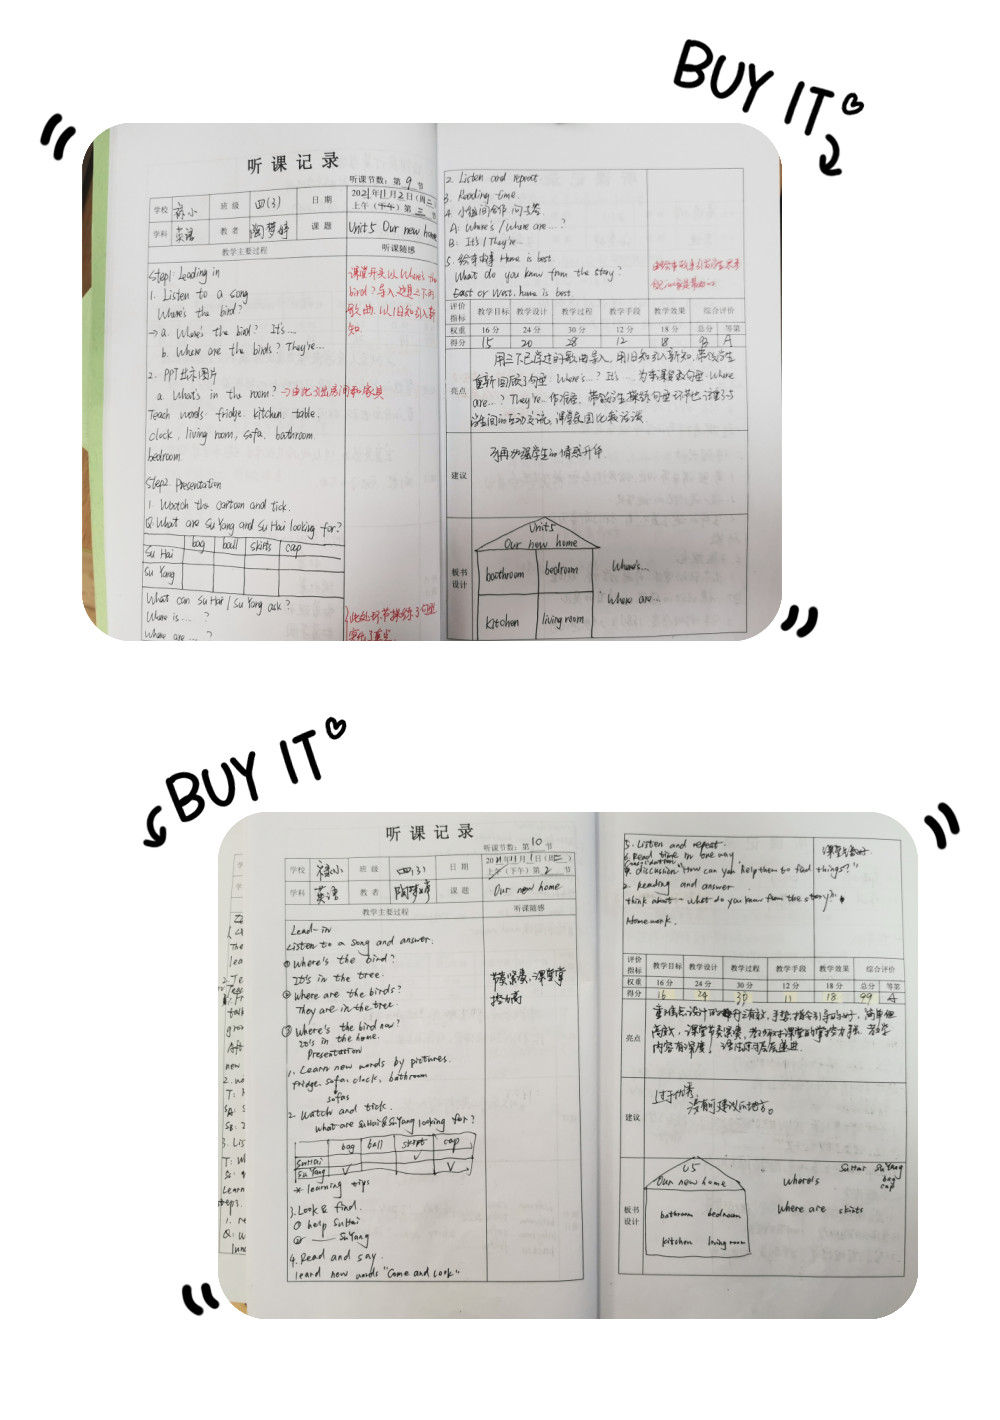 BUY IT
听课记录
听课节数：第 9 节
学校 禄小 班级 四(3) 日期 2021年11月2日(周二)
上午(下午)第 三 节
学科 英语 教者 陶梦婷 课题 Unit5 Our new home
教学主要过程 听课随感
Step1: Leading in
1. Listen to a song
Where's the bird?
→ a. Where's the bird? It's...
b. Where are the birds? They're...
2. PPT出示图片
a What's in the room? →由此引出房间和家具
Teach words: fridge. kitchen. table.
clock, living room, sofa, bathroom
bedroom
Step2 Presentation
1. Watch the cartoon and tick.
Q: What are Su Yang and Su Hai looking for?
bag ball skirts cap
Su Hai
Su Yang
What can Su Hai / Su Yang ask?
Where is... ?
Where are ... ?
课堂开头以Where's the
bird?导入,这是三下的
歌曲,以旧知引入新
知.
此处环节操练了句型
2. Listen and repeat
3. Reading time.
4. 小组间合作 问与答.
A: Where's / Where are...?
B: It's / They're...
5. 绘本故事 Home is best.
What do you know from the story?
East or West, home is best.
评价指标 教学目标 教学设计 教学过程 教学手段 教学效果 综合评价
权重 16分 24分 30分 12分 18分 总分 等第
得分 15 20 28 12 18 93 A
亮点
用三下已学过的歌曲导入,用旧知引入新知.带领学生
重新回顾了句型: Where's...? It's ... 为本课复数句型: Where
are...? They're... 作准备. 带领学生操练句型环节也注重了与
学生间的互动交流,课堂氛围比较活泼.
建议
可再加强学生的情感升华
板书设计
Unit5
Our new home
bathroom bedroom Where's...
kitchen living room Where are...
BUY IT
听课记录
听课节数：第 10 节
学校 禄小 班级 四(3) 日期 2021年11月1日(周二)
上午(下午)第 2 节
学科 英语 教者 陶梦婷 课题 Our new home
教学主要过程 听课随感
Lead-in
Listen to a song and answer.
① Where's the bird?
It's in the tree.
② Where are the birds?
They are in the tree.
③ Where's the bird now?
It's in the home.
Presentation
1. Learn new words by pictures.
fridge, sofa, clock, bathroom
sofas
2. Watch and tick.
What are Su Hai & Su Yang looking for?
bag ball skirt cap
Su Hai √
Su Yang √ √
* learning tips
3. Look & find.
① help Su Hai
② — Su Yang
4. Read and say.
learn new words "Come and look"
节奏紧凑,课堂掌
控好
5. Listen and repeat.
6. Read time in one way
Consolidation
1. discussion "How can you help them to find things?"
2. Reading and answer
think about - what do you know from the story?
Homework.
评价指标 教学目标 教学设计 教学过程 教学手段 教学效果 综合评价
权重 16分 24分 30分 12分 18分 总分 等第
得分 16 24 30 11 18 99 A
亮点
内容有深度,
建议
过于优秀,
没有可建议的地方。
板书设计
U5
Our new home
bathroom bedroom
kitchen living room
Su Hai Su Yang
Where's bag
cap
Where are skirts